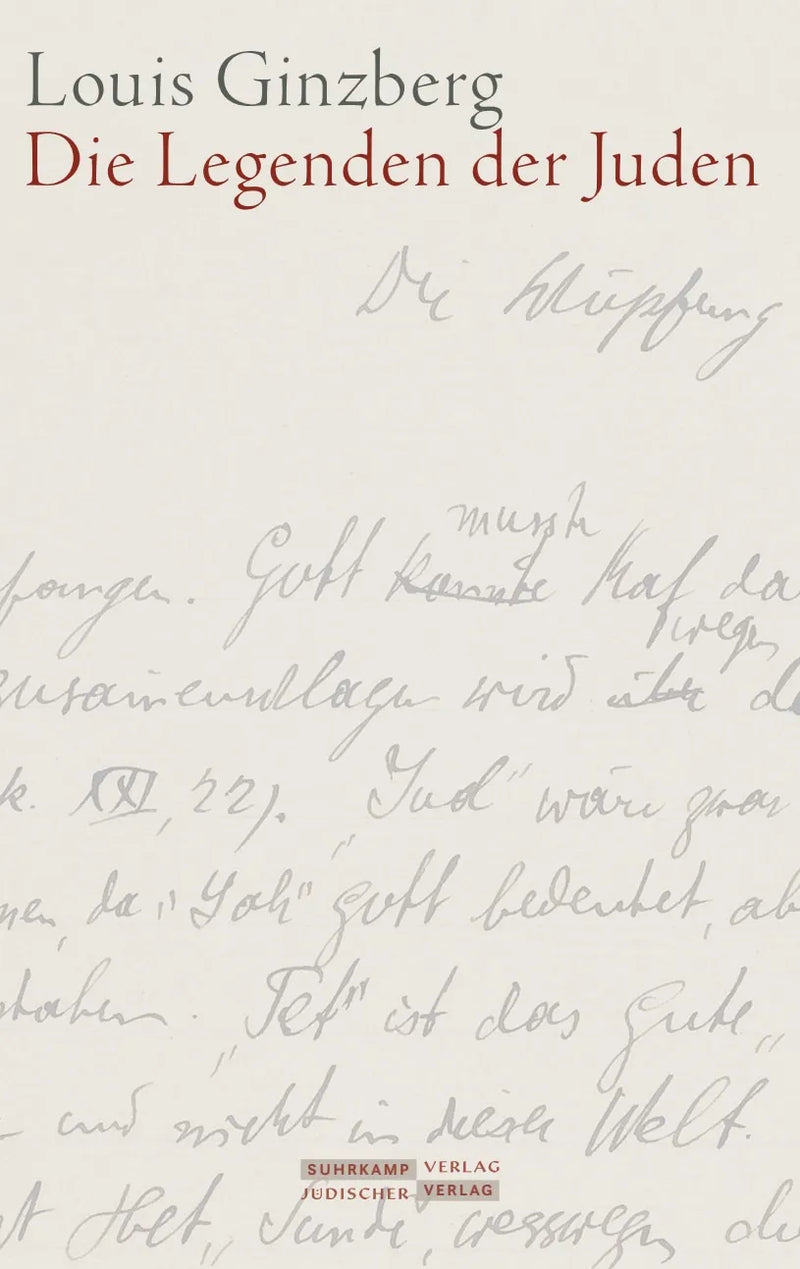 Louis Ginzberg
Die Legenden der Juden
Die
musste
Gott konnte Kaf da
wegen
wird über
k. XXI, 22). „Jud“ wäre zwar
nen, da „Yah“ Gott bedeutet, ab
staben. „Tet“ ist das Gute„
und nicht in dieser Welt.
SUHRKAMP VERLAG
JÜDISCHER VERLAG
Het„ Sünde, wesswegen